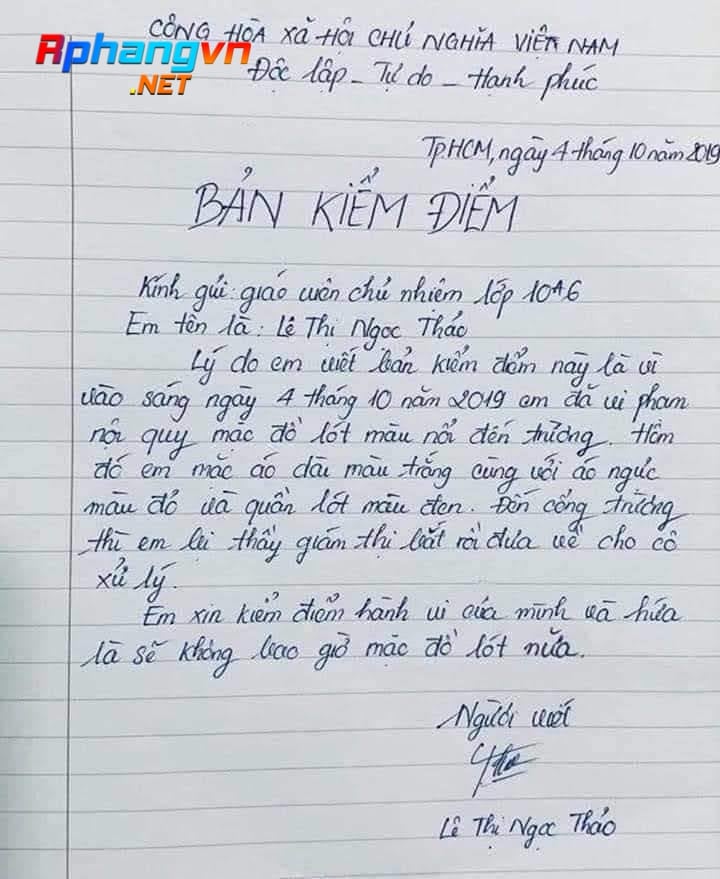 CỘNG HÒA XÃ HỘI CHỦ NGHĨA VIỆT NAM
Rphangvn
.NET
Độc lập - Tự do - Hạnh phúc
TP.HCM, ngày 4 tháng 10 năm 2019
BẢN KIỂM ĐIỂM
Kính gửi: giáo viên chủ nhiệm lớp 10A6
Em tên là: Lê Thị Ngọc Thảo
Lý do em viết bản kiểm điểm này là vì
vào sáng ngày 4 tháng 10 năm 2019 em đã vi phạm
nội quy mặc đồ lót màu nổi đến trường. Hôm
đó em mặc áo dài màu trắng cùng với áo ngực
màu đỏ và quần lót màu đen. Đến cổng trường
thì em bị thầy giám thị bắt rồi đưa về cho cô
xử lý.
Em xin kiểm điểm hành vi của mình và hứa
là sẽ không bao giờ mặc đồ lót nữa.
Người viết
Lê Thị Ngọc Thảo